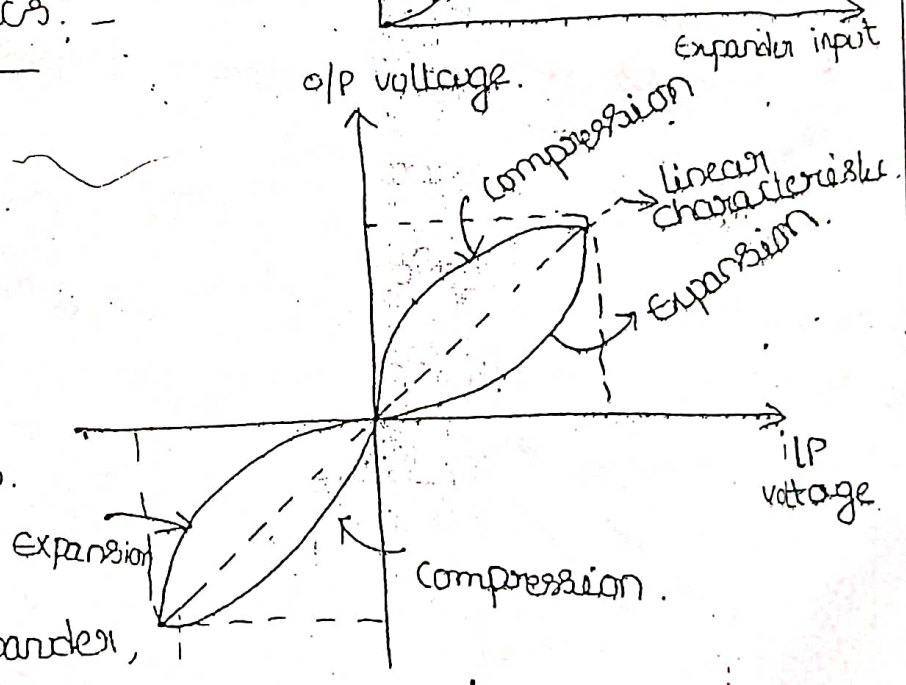 cs. –
Expander input
o/p voltage.
compression
linear
characteristic.
Expansion.
i/p
voltage
Expansion
compression.
pander,